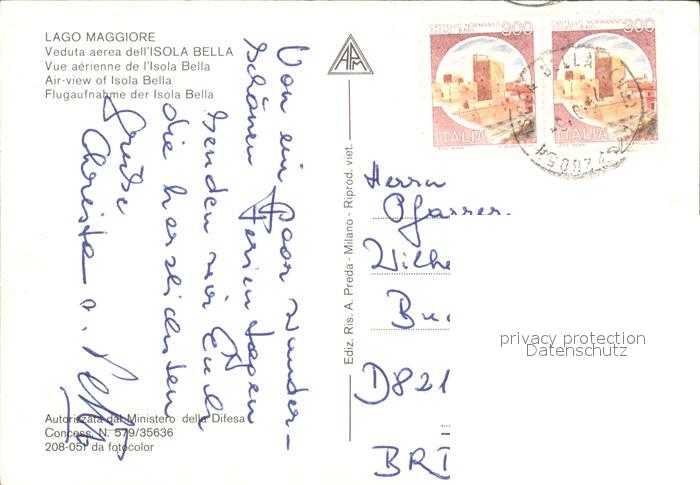 LAGO MAGGIORE
Veduta aerea dell'ISOLA BELLA
Vue aérienne de l'Isola Bella
Air-view of Isola Bella
Flugaufnahme der Isola Bella
Von ein paar wunder-
schönen Ferientagen
senden wir Euch
die herzlichsten
Grüße
Christa u.
Autorizzata dal Ministero della Difesa
Concess. N. 579/35636
208-051 da fotocolor
Ediz. Ris. A. Preda - Milano - Riprod. viet.
CASTELLO NORMANNO
SVEVO BARI
300
ITALIA
CASTELLO NORMANNO
SVEVO BARI
300
ITALIA
BELLA
28054
Herrn
Pfarrer
Wilhe
D821
BRD
privacy protection
Datenschutz